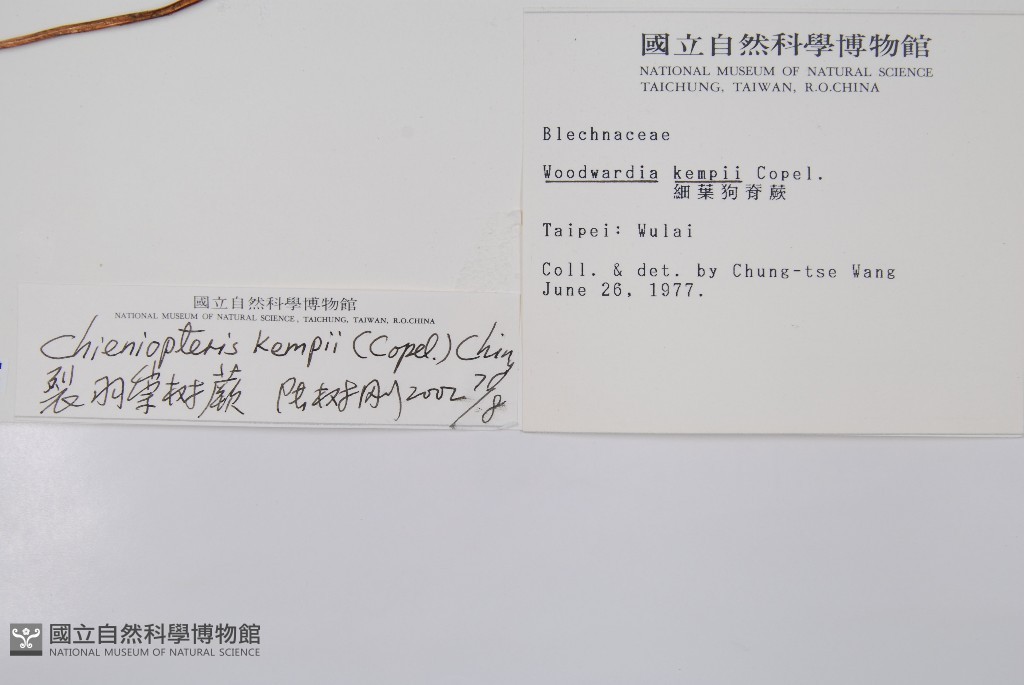 國立自然科學博物館
NATIONAL MUSEUM OF NATURAL SCIENCE
TAICHUNG, TAIWAN, R.O.CHINA
Blechnaceae
Woodwardia kempii Copel.
細葉狗脊蕨
Taipei: Wulai
Coll. & det. by Chung-tse Wang
June 26, 1977.
國立自然科學博物館
NATIONAL MUSEUM OF NATURAL SCIENCE, TAICHUNG, TAIWAN, R.O.CHINA
Chieniopteris kempii (Copel.) Chin
裂羽崇树蕨 陆树刚 2002
國立自然科學博物館
NATIONAL MUSEUM OF NATURAL SCIENCE